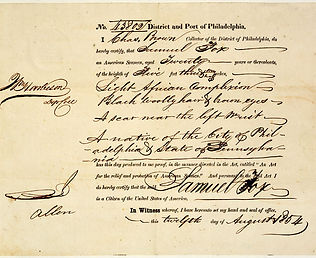 No. 43803 District and Port of Philadelphia.
I Chas. Brown Collector of the District of Philadelphia, do
hereby certify, that Samuel Fox
an American Seaman, aged Twenty years or thereabouts,
of the height of Five feet three inches,
Light African Complexion
Black woolly hair & brown eyes
A scar near the left Wrist
A native of the City of Phil-
adelphia & State of Pennsylva-
nia
has this day produced to me proof, in the manner directed in the Act, entitled "An Act
for the relief and protection of American Seamen." And pursuant to the said Act I
do hereby certify that the said Samuel Fox
is a Citizen of the United States of America.
In Witness whereof, I have hereunto set my hand and seal of office,
this twelfth day of August
Allen